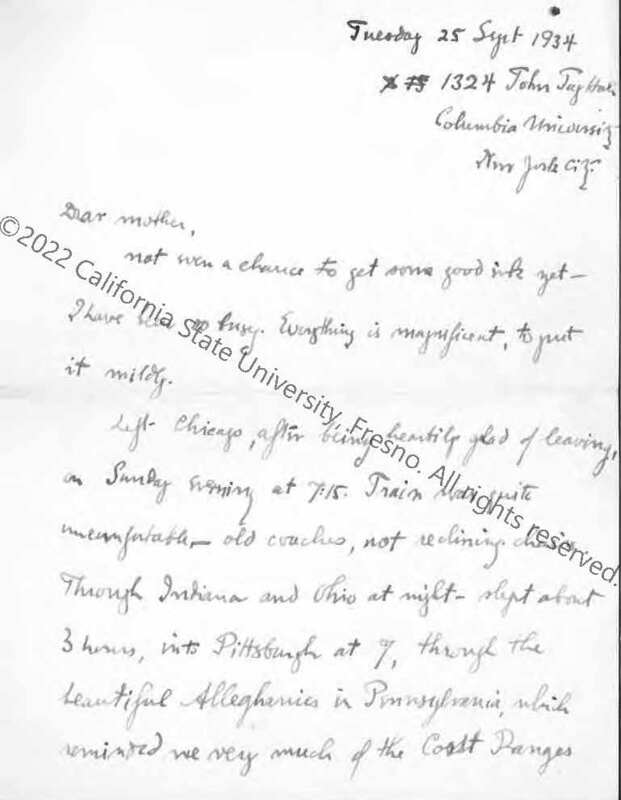 Tuesday 25 Sept 1934
1324 John Jay Hall
Columbia University
New York City.
Dear mother,
not even a chance to get some good ink yet—
I have been so busy. Everything is magnificent, to put
it mildly.
Left Chicago, after being heartily glad of leaving,
on Sunday evening at 7:15. Train was quite
uncomfortable — old coaches, not reclining chairs.
Through Indiana and Ohio at night — slept about
3 hours, into Pittsburgh at 7, through the
beautiful Alleghanies in Pennsylvania, which
reminded me very much of the Coast Ranges
©2022 California State University, Fresno. All rights reserved.